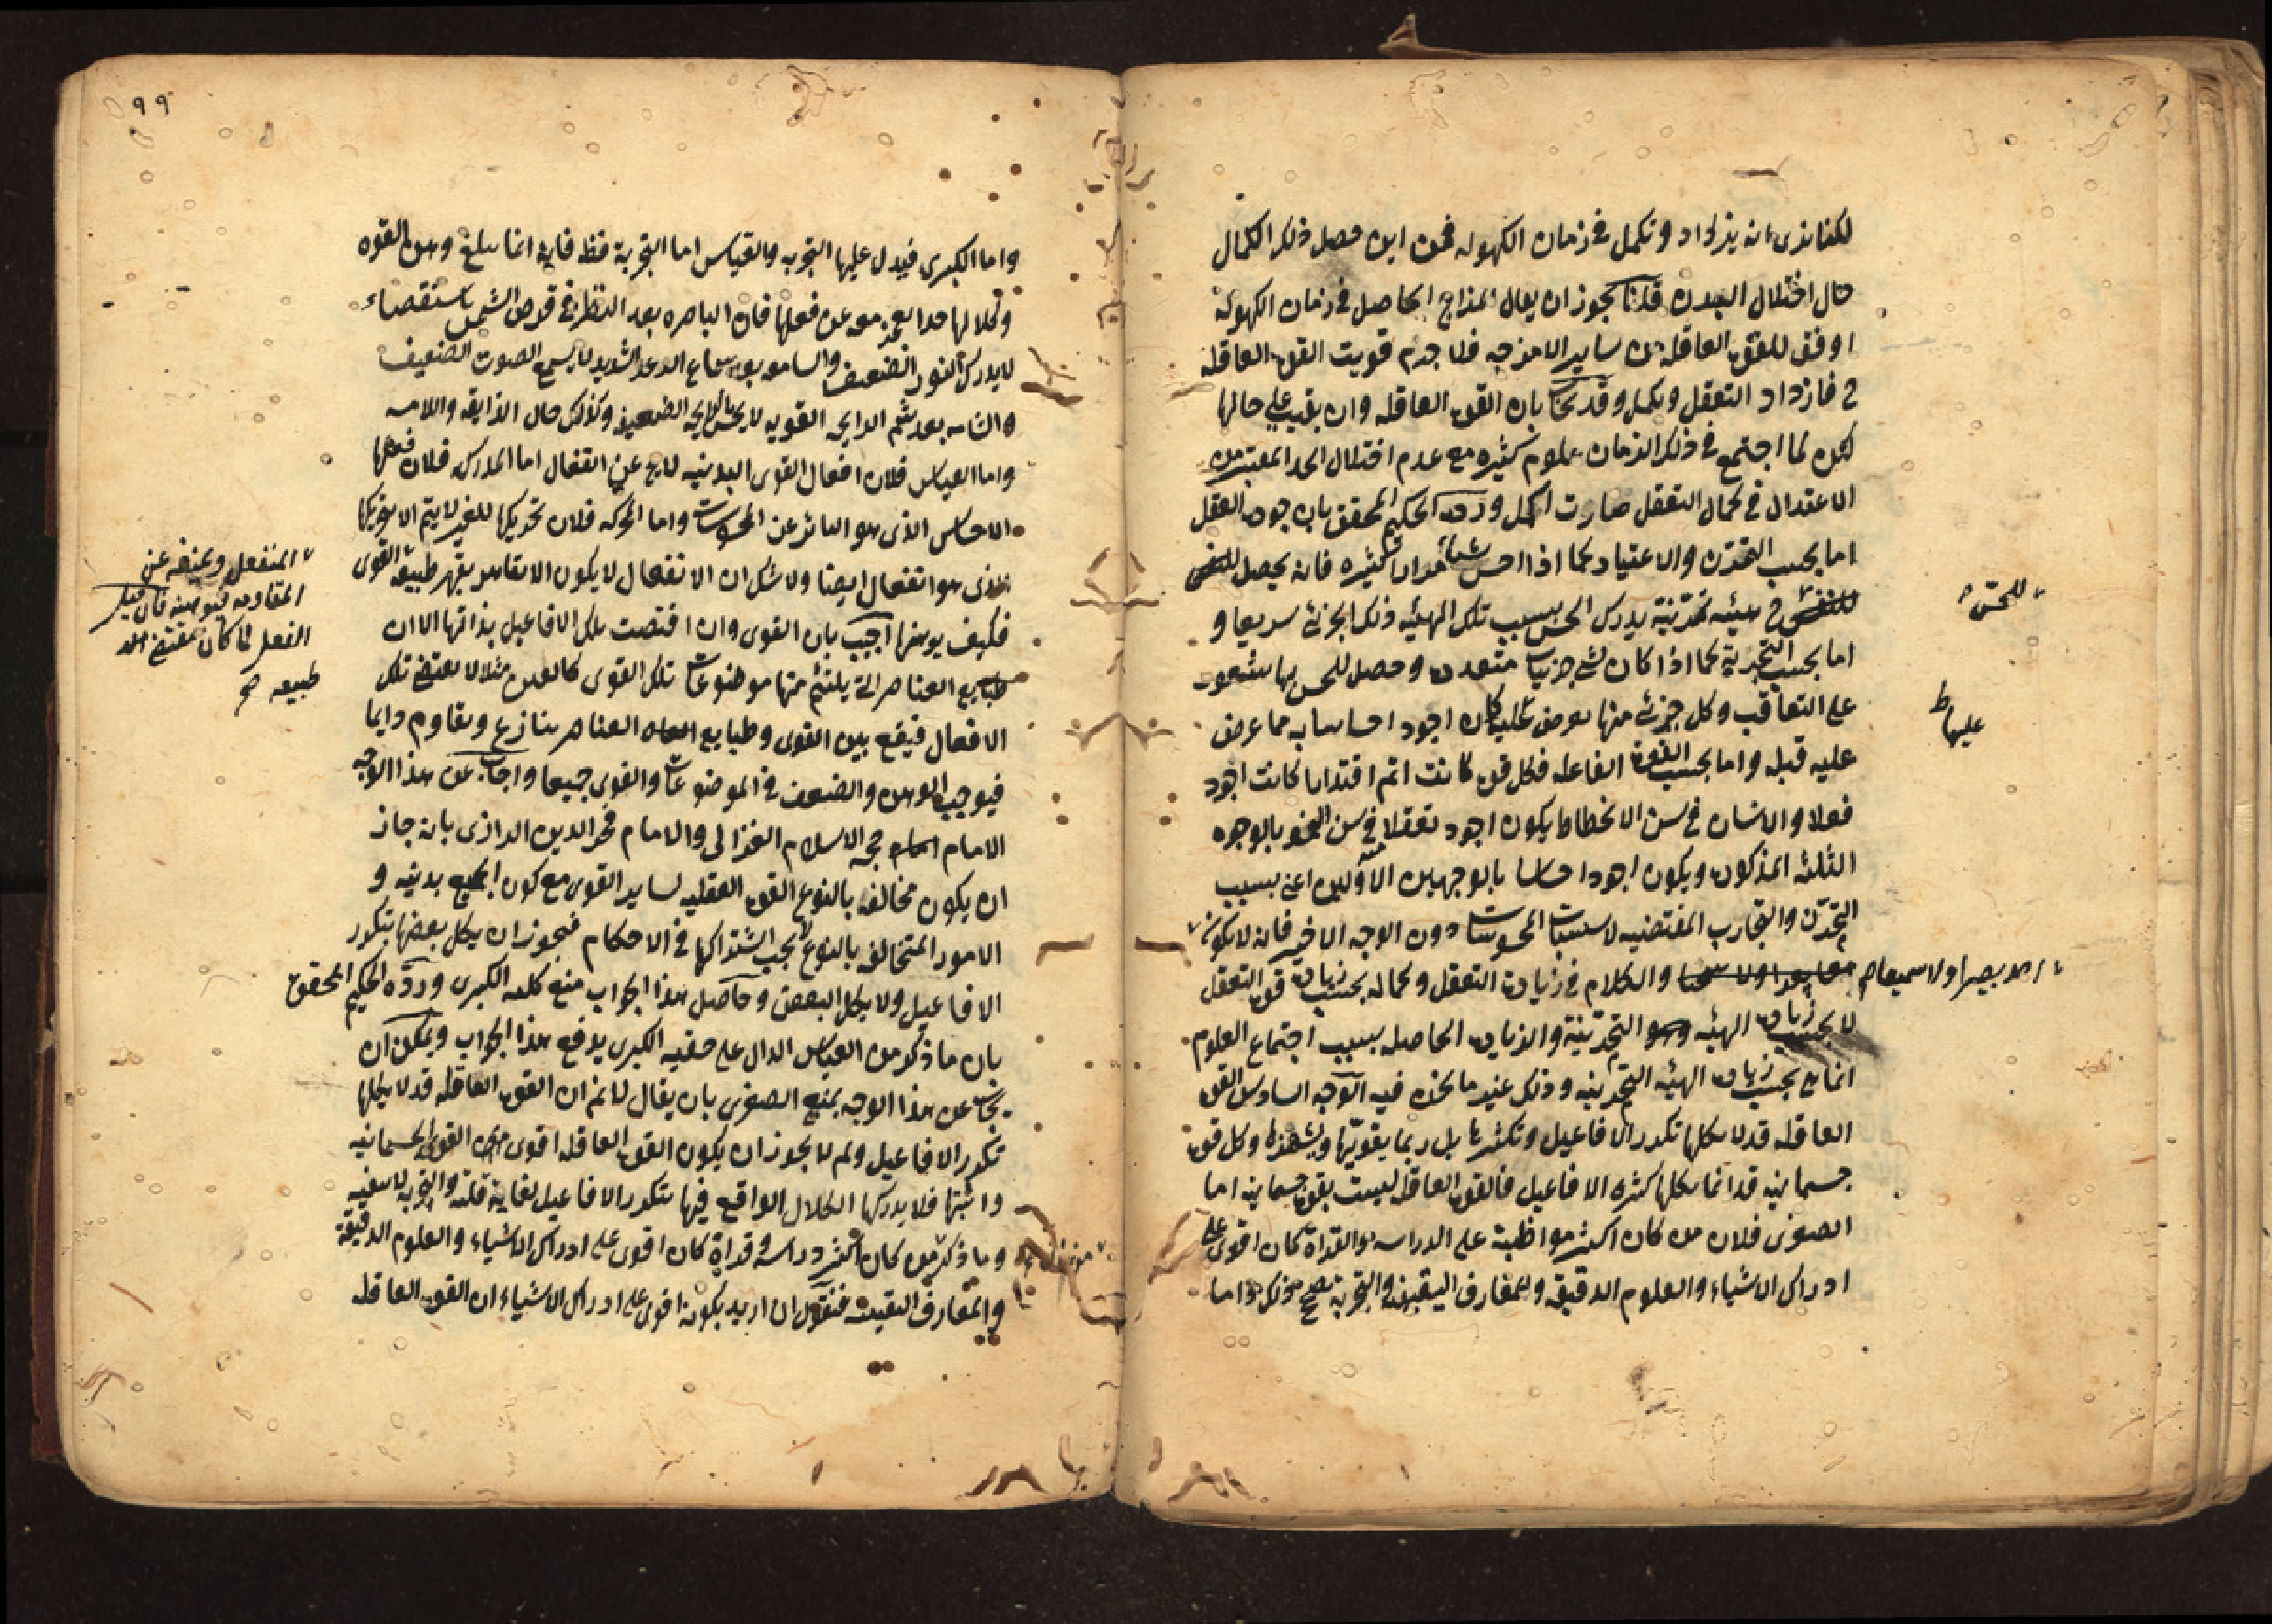 لكنا نرى انه يزداد وتكمل في زمان الكهوله فمن اين حصل ذلك الكمال
حال اختلال البدن قلنا يجوز ان يقال المزاج الحاصل في زمان الكهولة
اوفق للقوة العاقلة من ساير الامزجه فلا جرم قويت القوة العاقلة
فازداد التعقل وتكمل وقد بان القوة العاقله وان بقيت على حالها
لكن لما اجتمع في ذلك الزمان علوم كثيره مع عدم اختلال الحد المعتبر من
الاعتدال في كمال التعقل صارت اكمل ورده الحكيم المحقق بان جودة العقل
اما بحسب التمرن والاعتياد كما اذا احس شيئا مرارا كثيره فانه يحصل
في هيئه تمرنية يدرك الحس بسبب تلك الهيئه ذلك الجزئي سريعا و
اما بحسب التجربة كما اذا كان لشئ جزئيات متعددة وحصل للحس بها شعور
على التعاقب وكل جزئي منها يعرض عليه كان اجود احساسا به مما عرض
عليه قبله واما بحسب القوة الفاعله فكل قوة كانت اتم اقتدارا كانت اجود
فعلا والانسان في سن الانحطاط يكون اجود تعقلا منه في سن النمو بالوجوه
الثلثه المذكورة ويكون اجود احساسا بالوجهين الاولين اعني بسبب
التمرن والتجارب المقتضيه لاستثبات المحسوسات دون الوجه الاخير فانه لا يكون
احد بصرا ولا سمعا صح والكلام في زيادة التعقل وكماله بحسب زيادة قوة التعقل
لا بحسب زيادة الهيئه التمرنية والزيادة الحاصله بسبب اجتماع العلوم
انما هي بحسب زيادة الهيئه التمرنيه وذلك غير ما نحن فيه الوجه السادس القوة
العاقله قد لا يكلها تكرر الافاعيل وتكثرها بل ربما يقويها ويشحذها وكل قوة
جسمانيه قد انما يكلها كثرة الافاعيل فالقوة العاقلة ليست بقوة جسمانيه اما
الصغرى فلان من كان اكثر مواظبة على الدراسه والقراة كان اقوى على
ادراك الاشياء والعلوم الدقيقة والمعارف اليقينية والتجربة تصحح ذلك واما
للحس
عليها ط
٩٩
واما الكبرى فيدل عليها التجربه والقياس اما التجربة فظ فانه انما يبلغ وهن القوه
وكلالها حدا يعجز معه عن فعلها فان الباصره بعد النظر في قرص الشمس باستقصاء
لا يدرك النور الضعيف والسامعه بعد سماع الرعد الشديد لا يسمع الصوت الضعيف
والشامه بعد شم الرايحه القويه لا يحس بالرايحه الضعيفه وكذلك حال الذايقه واللامسه
واما القياس فلان افعال القوى البدنيه لا يخ عن انفعال اما المدركه فلان فعلها
الاحساس الذى هو التاثر عن المحسوسات واما المحركه فلان تحريكها للغير لا يتم الا بتحركها
الذى هو انفعال ايضا ولا شك ان الانفعال لا يكون الا بقاهر يقهر طبيعه القوى
فكيف يوهنها اجيب بان القوى وان اقتضت تلك الافاعيل بذاتها الا ان
طبايع العناصر التي يلتئم منها موضوعات تلك القوى كالعين مثلا لا يقتضى تلك
الافعال فيقع بين القوى وطبايع العناصر تنازع وتقاوم دايما
فيوجب الوهن والضعف في الموضوعات والقوى جميعا واجاب عن هذا الوجه
الامام حجه الاسلام الغزالى والامام فخر الدين الرازى بانه جاز
ان يكون مخالفه بالنوع القوة العقليه لساير القوى مع كون الجميع بدنيه و
الامور المتخالفه بالنوع لا يجب اشتراكها في الاحكام فيجوز ان يكل بعضها بتكرر
الافاعيل ولا يكل البعض وحاصل هذا الجواب منع كليه الكبرى ورده الحكيم المحقق
بان ما ذكر من القياس الدال على حقيه الكبرى يدفع هذا الجواب ويمكن ان
يجاب عن هذا الوجه بمنع الصغرى بان يقال لا نم ان القوة العاقله قد لا يكلها
تكرر الافاعيل ولم لا يجوز ان يكون القوة العاقله اقوى من القوى الجسمانيه
واثبتها فلا يدركها الكلال الواقع فيها بتكرر الافاعيل لغاية قلته والتجربه لا تنفيه
وما ذكر من كان اكثر دراسة وقراة كان اقوى على ادراك الاشياء والعلوم الدقيقة
والمعارف اليقينيه فنقول ان اريد بكونه اقوى على ادراك الاشياء ان القوة العاقله
المنفعل ويمنعه عن
المقاومه فيوهنه فان قيل
الفعل لما كان مقتضى
طبيعه صح